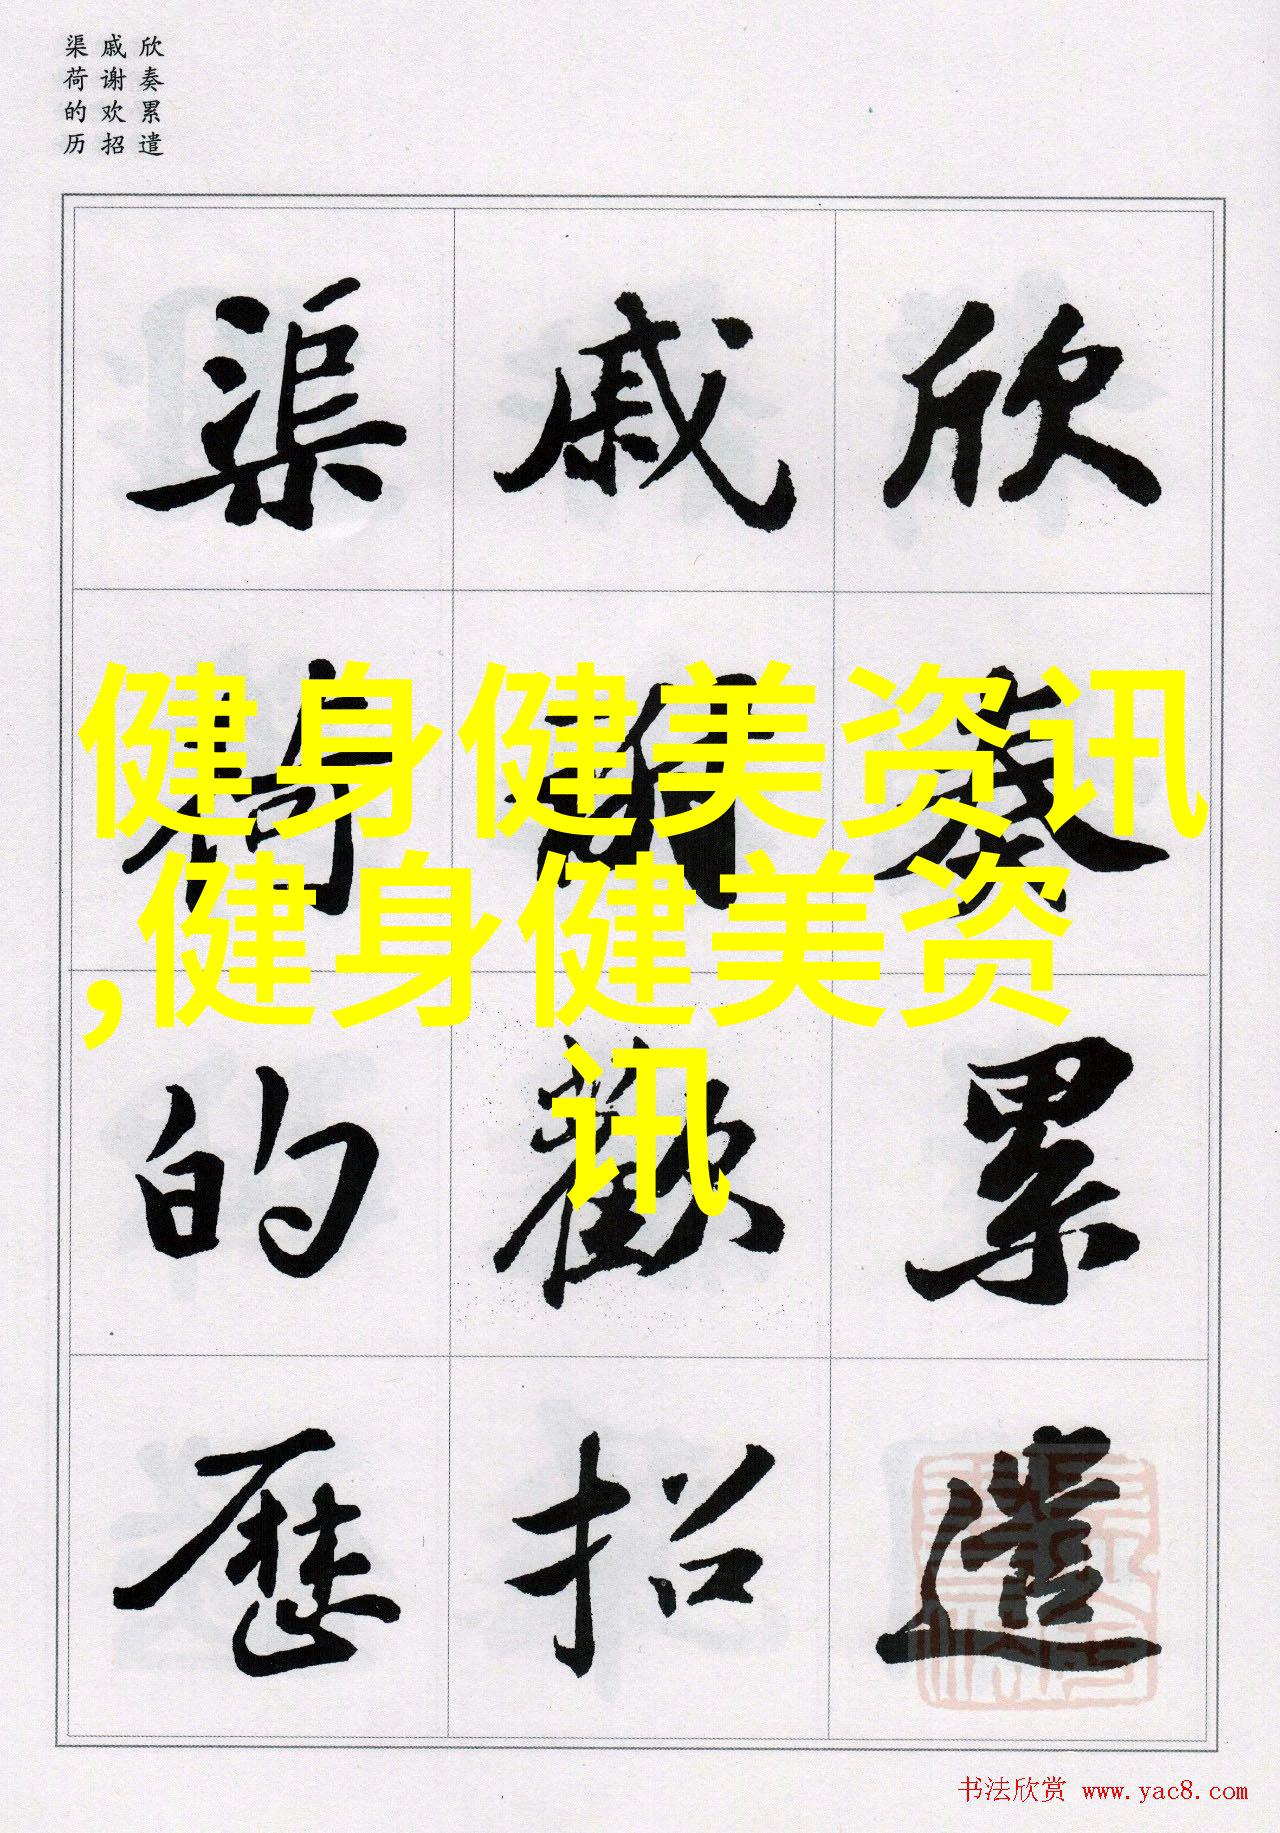 欣奏累遣
戚谢欢招
渠荷的历
欣奏累遣
戚謝歡招
渠荷的歷
健身健美资讯
,健身健美资
讯
书法欣赏 www.yac8.com